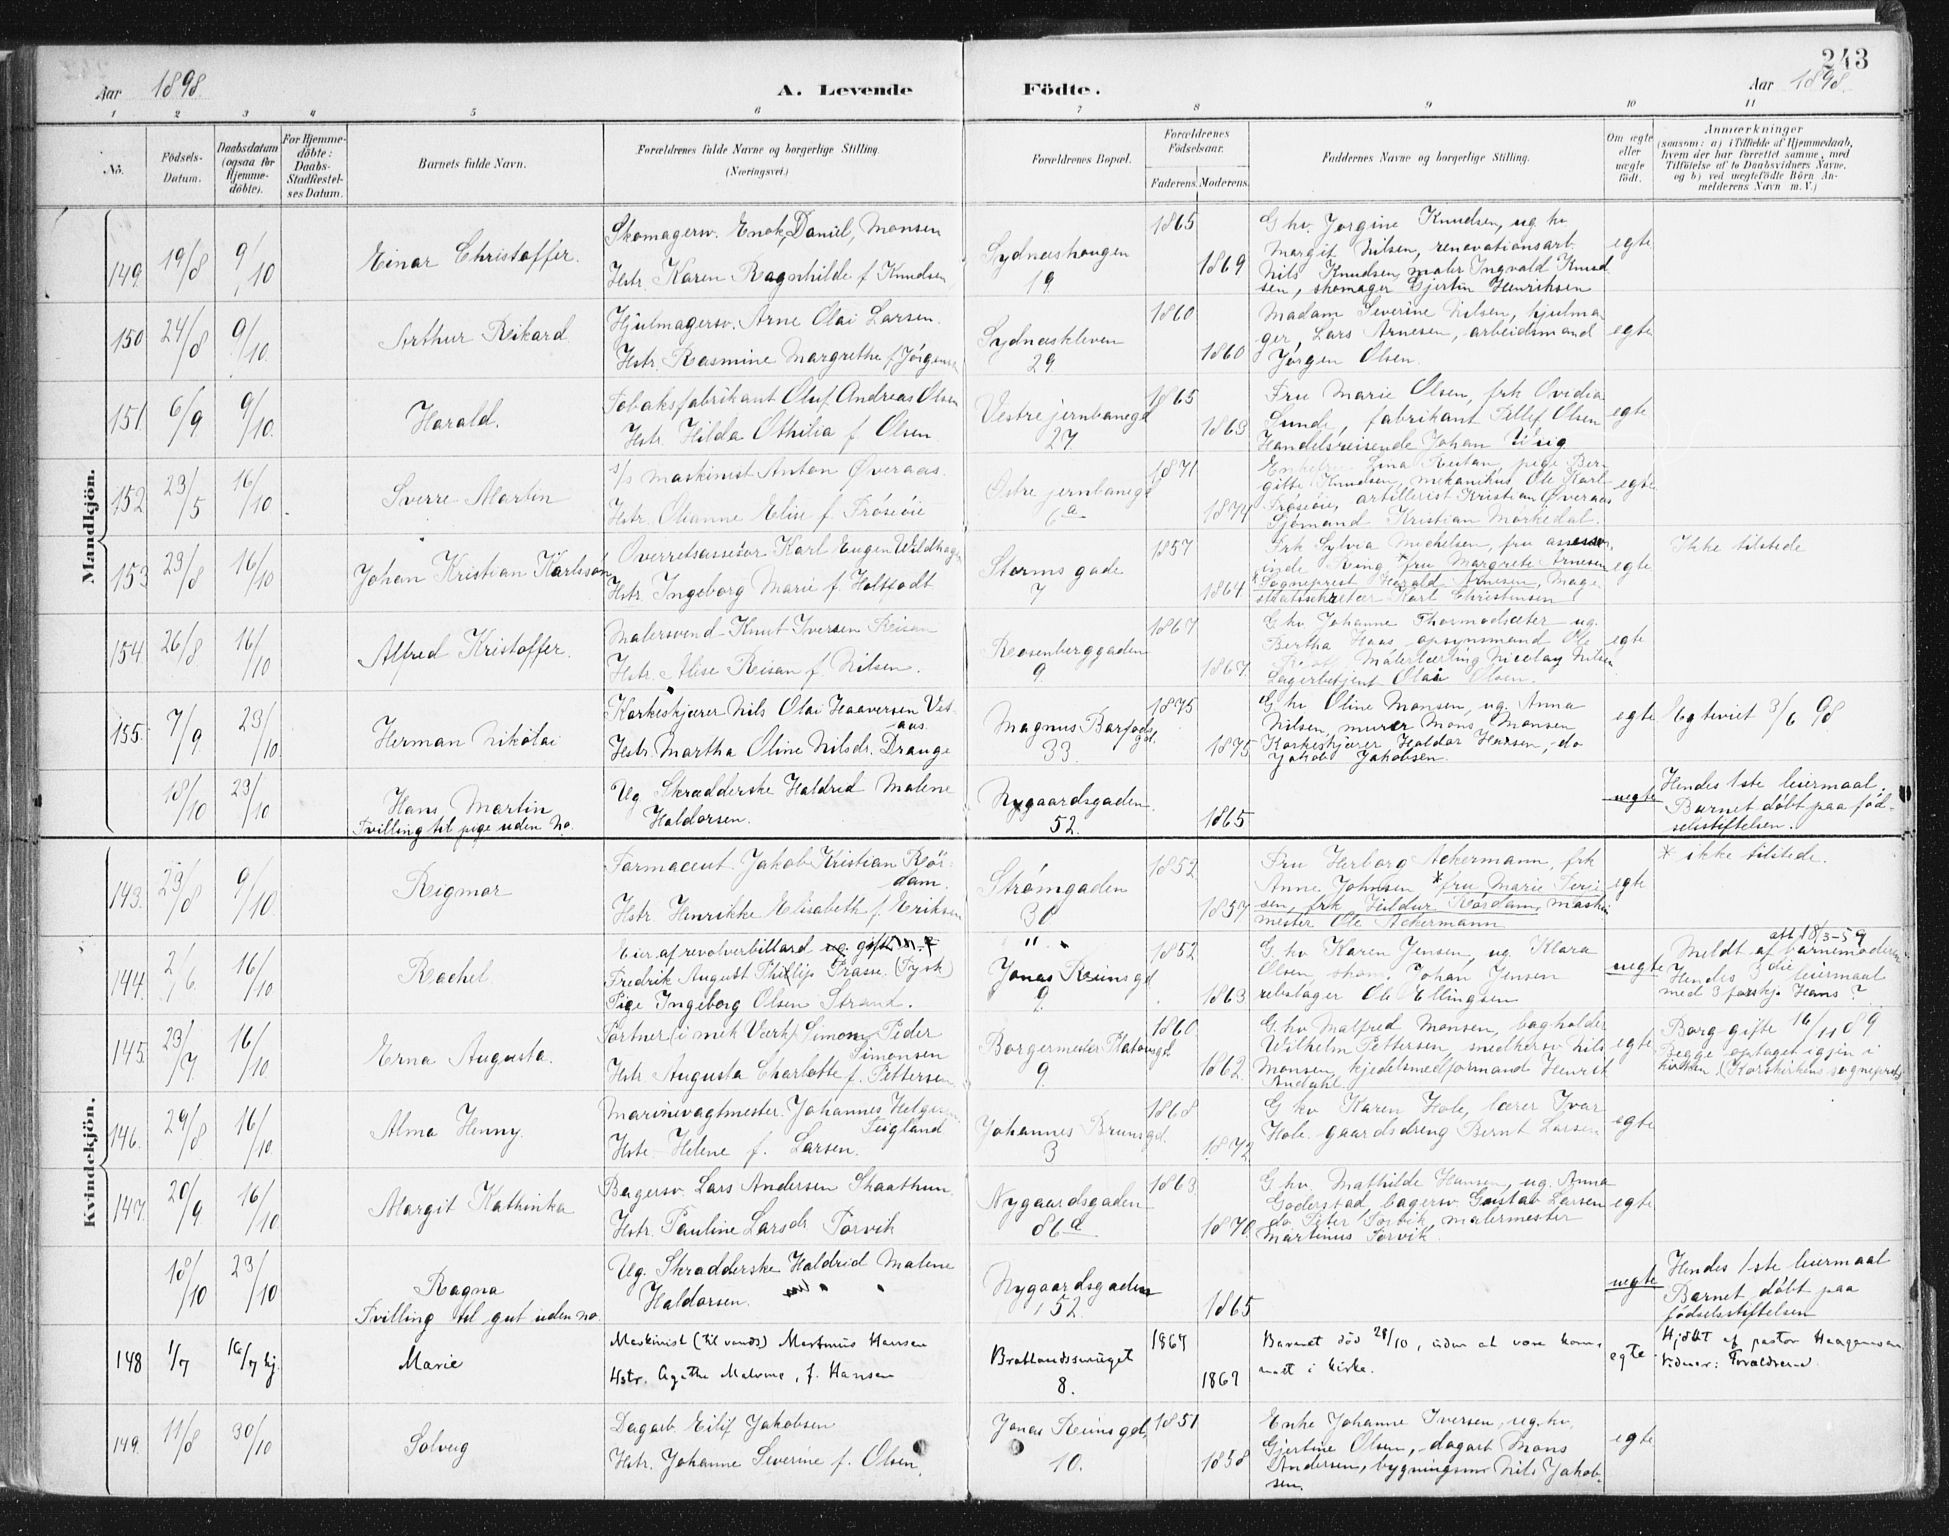 243
Aar 1898.
A. Levende Födte.
Aar 1898.
1 2 3 4 5 6 7 8 9 10 11
No.
Födsels-Datum.
Daabsdatum (ogsaa for hjemmedöbte).
For Hjemmedöbte: Daabs-Stadfæstelses Datum.
Barnets fulde Navn.
Forældrenes fulde Navne og borgerlige Stilling.
(Næringsvei.)
Forældrenes Bopæl.
Forældrenes Födselsaar.
Faderens. Moderens.
Faddernes Navne og borgerlige Stilling.
Om ægte eller uægte födt.
Anmærkninger
(saasom: a) i Tilfælde af Hjemmedaab, hvem der har forrettet samme, med Tilföielse af to Daabsvidners Navne, og b) ved uægtefödte Börn Anmelderens Navn m. V.)
Mandkjön.
149. 19/8 9/10 Einar Christoffer.
Skomagersv. Enok Daniel Monsen
Hstr. Karen Ragnhilde f Knudsen
Sydneshaugen 19
1865 1869
G hv. Jorgine Knudsen, ug. hv.
Margit Nilsen, renovationsarb.
Nils Knudsen, maler Ingvald Knud
sen, skomager Gjertin Henriksen
egte
150. 24/8 9/10 Arthur Rikard
Hjulmagersv. Arne Olai Larsen.
Hstr. Rasmine Margrethe f Jörgensen
Sydneskleven 29
1860 1860
Madam Severine Nilsen, hjulma
ger Lars Arnesen, arbeidsmand
Jörgen Olsen.
egte
151. 6/9 9/10 Harald.
Tobaksfabrikant Oluf Andreas Olsen
Hstr. Hilda Othilia f. Olsen
Vestre jernbanegd 27
1865 1863
Fru Marie Olsen, frk Ovidia
Sunde, fabrikant Detlef Olsen
Handelsreisende Johan
egte
152. 23/5 16/10 Sverre Martin
s/s maskinist Anton Överaas.
Hstr. Olianne Elise f. Frösöie
Östre jernbanegd 6a
1871 1874
Lina pige Ber
gitte Knudsen, mekanikus Ole Karl
artillerist Kristian Överaas
Sjömand Kristian Mørkedal.
egte
153 23/8 16/10 Johan Kristian Karlsson
Overretsassesor Karl Eugen Wildhagen
Hstr. Ingeborg Marie f. Holtfodt
Storms gade 7
1857 1864
Frk Sylvia Michelsen, fru assessor
inde Ring *fru Margrete Arnesen
*Sogneprest Harald Arnesen, Magi
stratssekretær Karl Christensen
egte
Ikke tilstede
154 26/8 16/10 Alfred Kristoffer.
Malersvend Knut Iversen Reisan
Hstr. Alise Reisan f. Nilsen.
Rosenberggaden 9.
1867 1867.
G hv. Johanne Thormodsæter ug.
Bertha Haas, opsynsmand Ole
Malerlærling Nicolay Nilsen
Lagerbetjent Olai Olsen.
egte
155. 7/9 23/10 Herman Nikolai
Korkeskjærer Nils Olai Haaversen Vet
aas.
Hstr. Martha Oline Nilsdr. Drange
Magnus Barfods gd. 33.
1875 1875
G. hv Oline Monsen, ug. Anna
Nilsen, murer Mons Monsen
Korkeskjærer Haldor Hansen, do
Jakob Jakobsen.
egte
Egteviet 3/6 98
18/10 23/10 Hans Martin
Tvilling til pige uden No.
Ug. Skrædderske Haldrid Malene
Haldorsen.
Nygaardsgaden 52.
1865
uegte
Hendes 1ste leiermaal.
Barnet döbt paa föd-
selsstiftelsen.
Kvindekjön.
143. 23/8 9/10 Rigmor
Farmaceut Jakob Kristian Rör-
dam.
Hstr Henrikke Elisabeth f. Eriksen
Strömgaden 36
1852 1857
Fru Herborg Ackermann, frk
Anne Johnsen *fru Marie Ferie
sen, frk Hildur Rørdam, maskin
mester Ole Ackermann
egte
* ikke tilstede.
144. 2/6 16/10 Rachel.
Eier af revolverbillard ug. gift
Fredrik August Phillip Grasse (Tysk)
Pige Ingeborg Olsen Strand.
" Jonas Reinsgd 9.
1852 1863
G. hv Karen Jensen, ug. Klara
Olsen, skom. Johan Jensen
rebslager Ole Ellingsen
uegte
att 18/3-59
Meldt af barnemoderen
Hendes 3die leiermaal
med 3 forskj. Hans ?
145. 23/7 16/10 Erna Augusta.
Portner (i mek Værk) Simon Peder
Simonsen
Hstr Augusta Charlotte f. Pettersen
Borgermester Platousgd 9.
1860 1862.
G. hv Malfred Monsen, bagholder
Wilhelm Pettersen, smedkersv Nils
Monsen, kjedelsmedformand Henrik
Andahl
egte
Borg gifte 16/11 89
Begge optaget igjen i
kirken. (Korskirkens sogneprest)
146. 29/8 16/10 Alma Henny.
Marinevagtmester Johannes Helgesen
Seigland
Hstr. Helene f. Larsen.
Johannes Brunsgd. 3
1868 1872
G. hv Karen Hole, lærer Ivar
Hole, gaardsdreng Bernt Larsen
egte
147. 20/9 16/10 Margit Kathinka
Bagersv. Lars Andersen Skaathun
Hstr. Pauline Larsdr Torvik
Nygaardsgaden 86a
1863 1870
G. hv. Mathilde Hansen, ug. Anna
Goderstad, bagersv. Gustav Larsen
do Peter Torvik, malermester
Martinus Torvik.
egte
18/10 23/10 Ragna
Tvilling til gut uden no.
Ug. Skrædderske Haldrid Malene
Haldorsen.
Nygaardsgaden 52
1865
uegte
Hendes 1ste leiermaal
Barnet döbt paa
födselsstiftelsen
148 1/7 16/7 hj. Marie
Maskinist (til vands) Martinus Hansen
Hstr. Agathe Malvine, f. Hansen
Bratlandssmuget 8.
1867 1867
Barnet död 28/10, uden at være kom-
met i kirke.
egte
Hjdøbt af pastor Haagensen
Vidner: Forældrene.
149. 11/8 30/10 Solveig
Dagarb. Eilif Jakobsen
Hstr. Johanne Severine f. Olsen.
Jonas Reinsgd. 10.
1851 1858
Enke Johanne Iversen, ug. hv.
Gjertine Olsen, dagarb Mons
Andersen, bygningssnr Nils Jakob-
sen.
egte